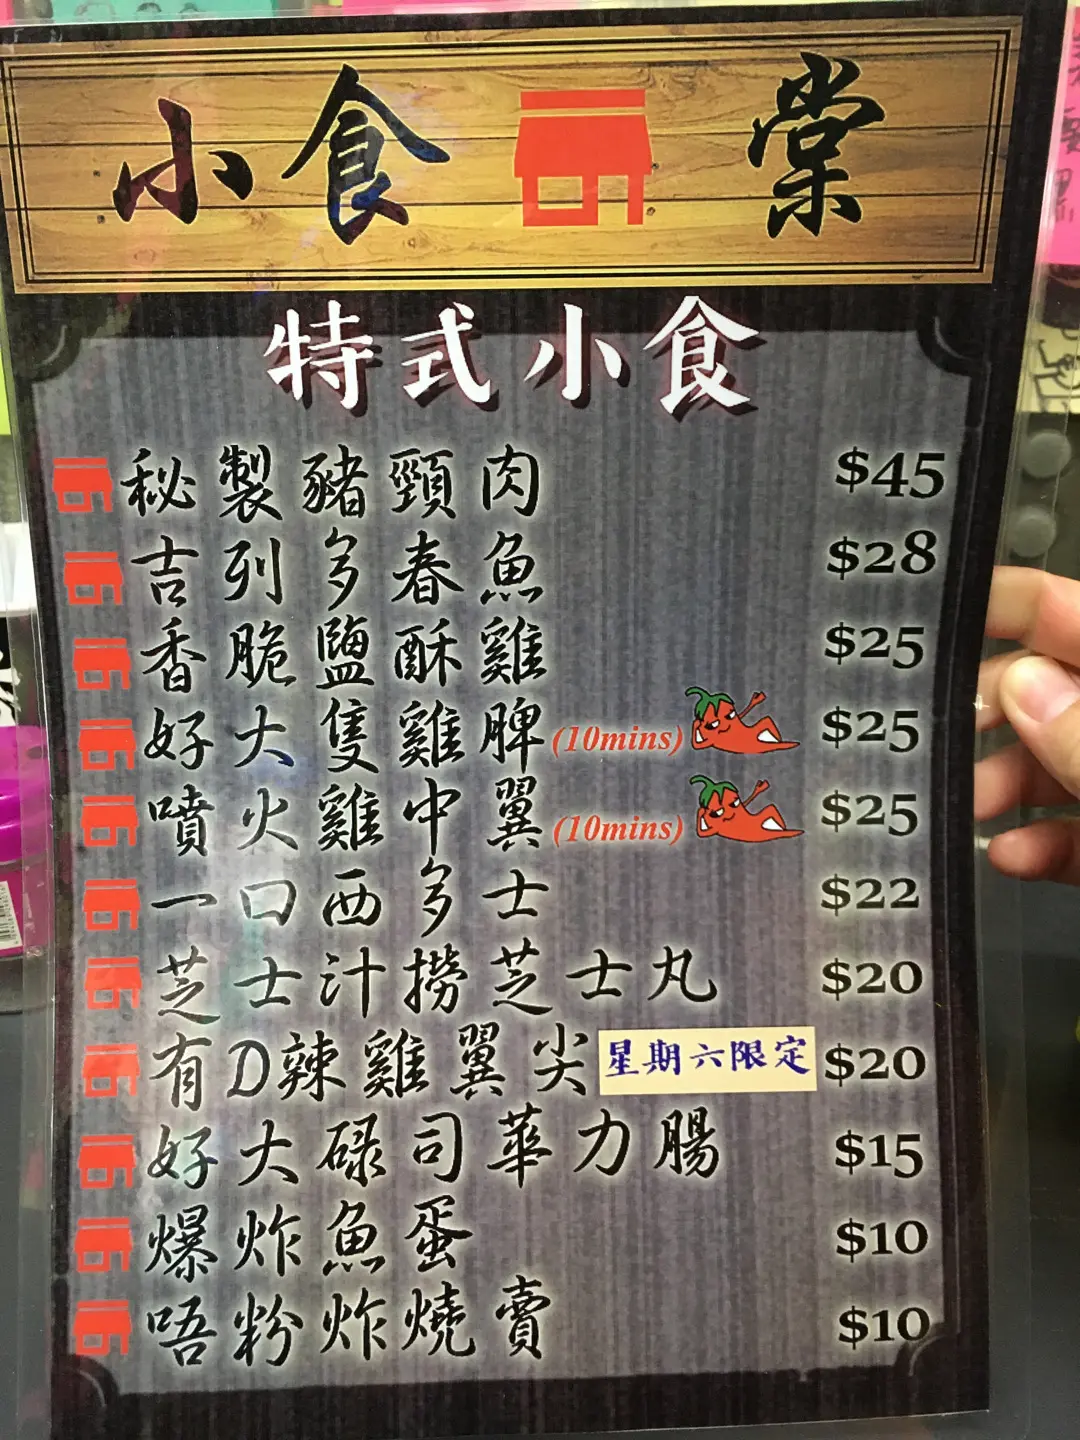 小食棠
特式小食
秘製豬頸肉 $45
吉列多春魚 $28
香脆鹽酥雞 $25
好大隻雞脾 (10mins) $25
噴火雞中翼 (10mins) $25
一口西多士 $22
芝士汁撈芝士丸 $20
有D辣雞翼尖 星期六限定 $20
好大碌司華力腸 $15
爆炸魚蛋 $10
唔粉炸燒賣 $10